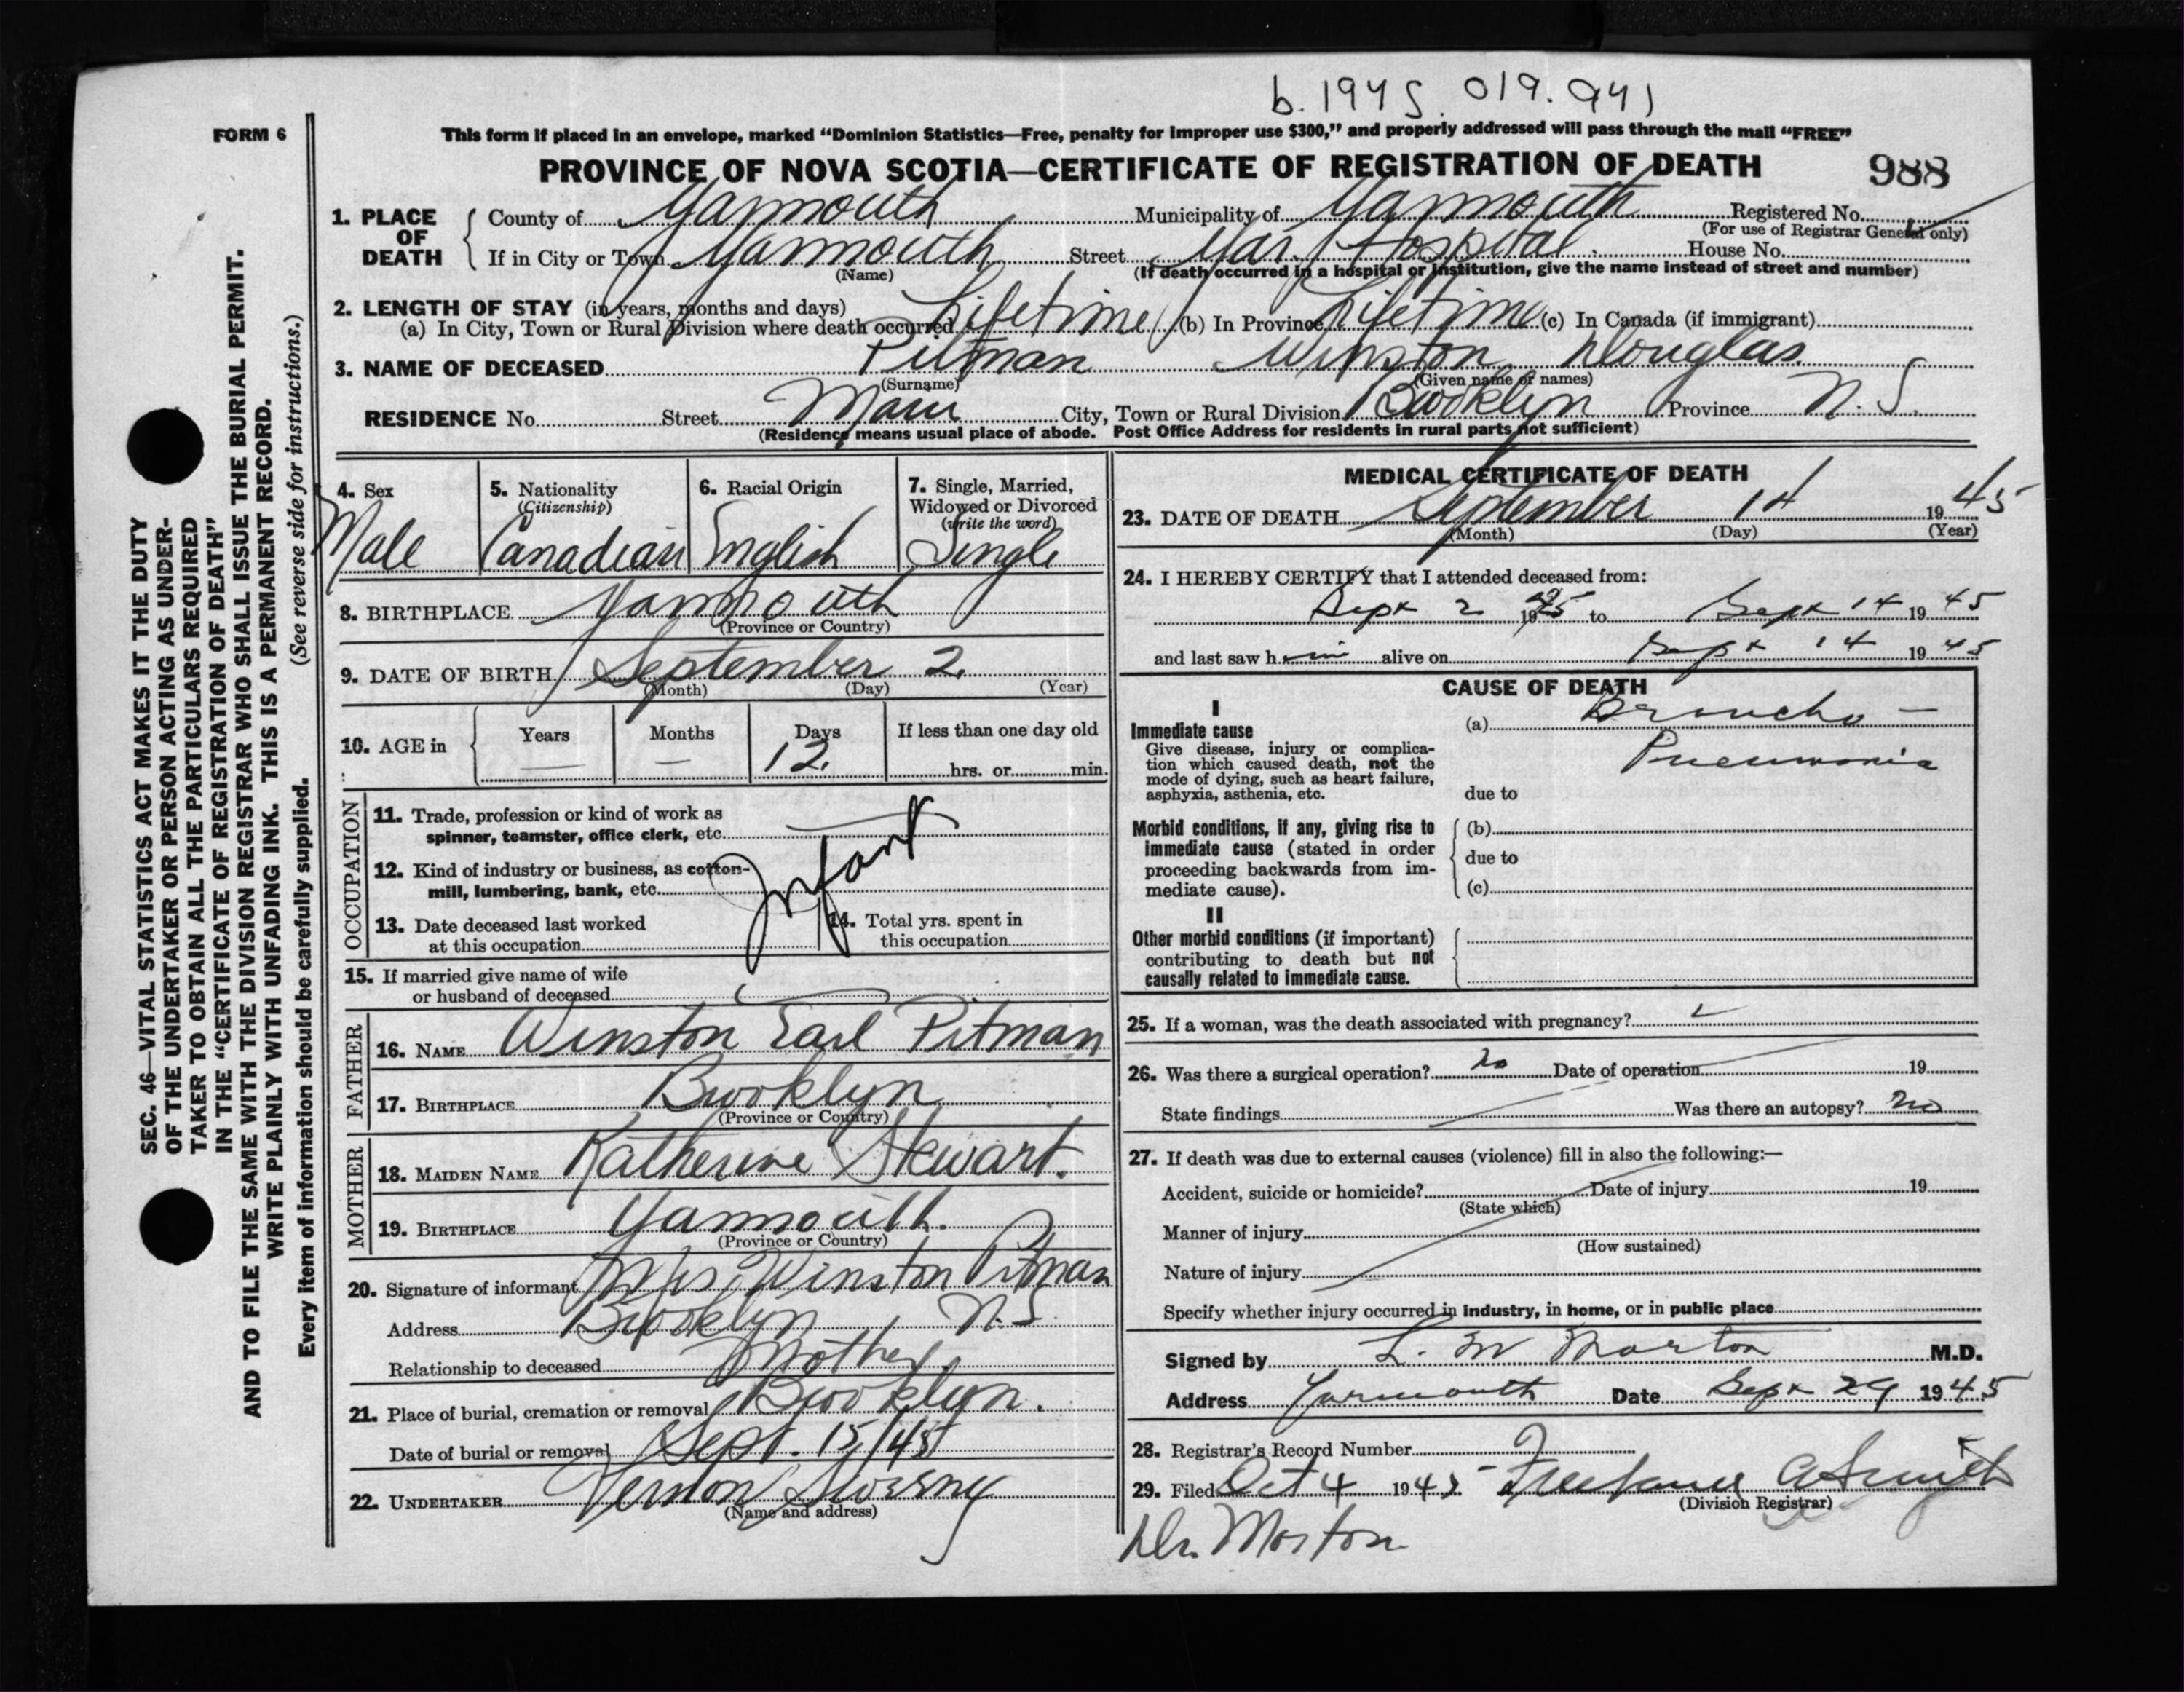 b. 1945. 019. 941
FORM 6
This form if placed in an envelope, marked "Dominion Statistics—Free, penalty for improper use $300," and properly addressed will pass through the mail "FREE"
PROVINCE OF NOVA SCOTIA—CERTIFICATE OF REGISTRATION OF DEATH 988
1. PLACE OF DEATH { County of Yarmouth Municipality of Yarmouth Registered No.
(For use of Registrar General only)
If in City or Town Yarmouth Street Yar. Hospital House No.
(Name) (If death occurred in a hospital or institution, give the name instead of street and number)
2. LENGTH OF STAY (in years, months and days)
(a) In City, Town or Rural Division where death occurred Lifetime (b) In Province Lifetime (c) In Canada (if immigrant)
3. NAME OF DECEASED Pitman Winston Douglas
(Surname) (Given name or names)
RESIDENCE No. Street Main City, Town or Rural Division Brooklyn Province N.S.
(Residence means usual place of abode. Post Office Address for residents in rural parts not sufficient)
4. Sex
Male
5. Nationality
(Citizenship)
Canadian
6. Racial Origin
English
7. Single, Married,
Widowed or Divorced
(write the word)
Single
8. BIRTHPLACE Yarmouth
(Province or Country)
9. DATE OF BIRTH September 2.
(Month) (Day) (Year)
10. AGE in { Years — Months — Days 12. If less than one day old
hrs. or min.
OCCUPATION
11. Trade, profession or kind of work as
spinner, teamster, office clerk, etc.
12. Kind of industry or business, as cotton-
mill, lumbering, bank, etc.
Infant
13. Date deceased last worked
at this occupation
14. Total yrs. spent in
this occupation
15. If married give name of wife
or husband of deceased
FATHER
16. NAME Winston Earl Pitman
17. BIRTHPLACE Brooklyn
(Province or Country)
MOTHER
18. MAIDEN NAME Katherine Stewart.
19. BIRTHPLACE Yarmouth.
(Province or Country)
20. Signature of informant Mrs. Winston Pitman
Address Brooklyn, N.S.
Relationship to deceased Mother.
21. Place of burial, cremation or removal Brooklyn.
Date of burial or removal Sept. 15/45
22. UNDERTAKER Vernon Sweeny
(Name and address)
MEDICAL CERTIFICATE OF DEATH
23. DATE OF DEATH September 14 1945
(Month) (Day) (Year)
24. I HEREBY CERTIFY that I attended deceased from:
Sept 2 1945 to Sept 14 1945
and last saw him alive on Sept 14 1945
CAUSE OF DEATH
I
Immediate cause
Give disease, injury or complica-
tion which caused death, not the
mode of dying, such as heart failure,
asphyxia, asthenia, etc.
(a) Broncho —
Pneumonia
due to
Morbid conditions, if any, giving rise to
immediate cause (stated in order
proceeding backwards from im-
mediate cause).
(b)
due to
(c)
II
Other morbid conditions (if important)
contributing to death but not
causally related to immediate cause.
25. If a woman, was the death associated with pregnancy?
26. Was there a surgical operation? no Date of operation 19
State findings Was there an autopsy? no
27. If death was due to external causes (violence) fill in also the following:—
Accident, suicide or homicide? Date of injury 19
(State which)
Manner of injury
(How sustained)
Nature of injury
Specify whether injury occurred in industry, in home, or in public place
Signed by L. M Morton M.D.
Address Yarmouth Date Sept 29 1945
28. Registrar's Record Number
29. Filed Oct 4 1945
(Division Registrar)
Dr. Morton
SEC. 46—VITAL STATISTICS ACT MAKES IT THE DUTY
OF THE UNDERTAKER OR PERSON ACTING AS UNDER-
TAKER TO OBTAIN ALL THE PARTICULARS REQUIRED
IN THE "CERTIFICATE OF REGISTRATION OF DEATH"
AND TO FILE THE SAME WITH THE DIVISION REGISTRAR WHO SHALL ISSUE THE BURIAL PERMIT.
WRITE PLAINLY WITH UNFADING INK. THIS IS A PERMANENT RECORD.
Every item of information should be carefully supplied. (See reverse side for instructions.)